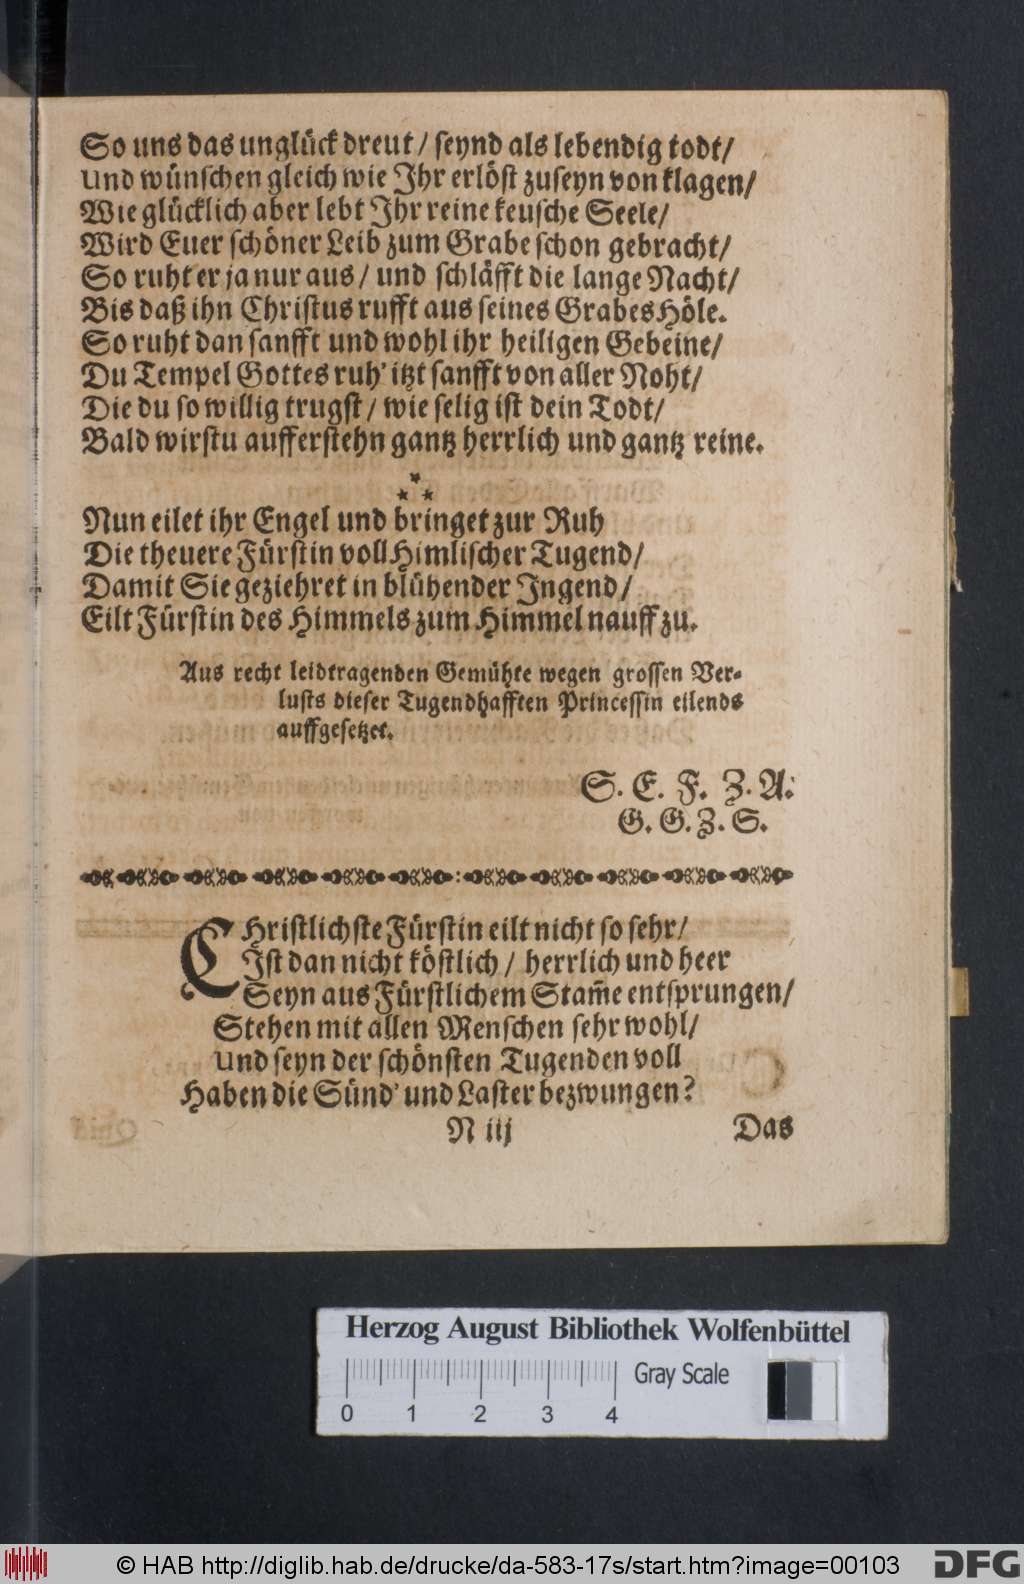 So uns das unglück dreut / seynd als lebendig todt /
Und wünschen gleich wie Ihr erlöst zuseyn von klagen /
Wie glücklich aber lebt Ihr reine keusche Seele /
Wird Euer schöner Leib zum Grabe schon gebracht /
So ruht er ja nur aus / und schläfft die lange Nacht /
Bis daß ihn Christus rufft aus seines Grabes Höle.
So ruht dan sanfft und wohl ihr heiligen Gebeine /
Du Tempel Gottes ruh' itzt sanfft von aller Noht /
Die du so willig trugst / wie selig ist dein Todt /
Bald wirstu aufferstehn gantz herrlich und gantz reine.
* * *
Nun eilet ihr Engel und bringet zur Ruh
Die theuere Fürstin voll Himlischer Tugend /
Damit Sie geziehret in blühender Jngend /
Eilt Fürstin des Himmels zum Himmel nauff zu.
Aus recht leidtragenden Gemühte wegen grossen Ver-
lusts dieser Tugendhafften Princessin eilends
auffgesetzet.
S. E. F. Z. A.
G. G. Z. S.
CHristlichste Fürstin eilt nicht so sehr /
Ist dan nicht köstlich / herrlich und heer
Seyn aus Fürstlichem Stam̃e entsprungen /
Stehen mit allen Menschen sehr wohl /
Und seyn der schönsten Tugenden voll
Haben die Sünd' und Laster bezwungen?
N iij Das
Herzog August Bibliothek Wolfenbüttel
Gray Scale
0 1 2 3 4
© HAB http://diglib.hab.de/drucke/da-583-17s/start.htm?image=00103 DFG